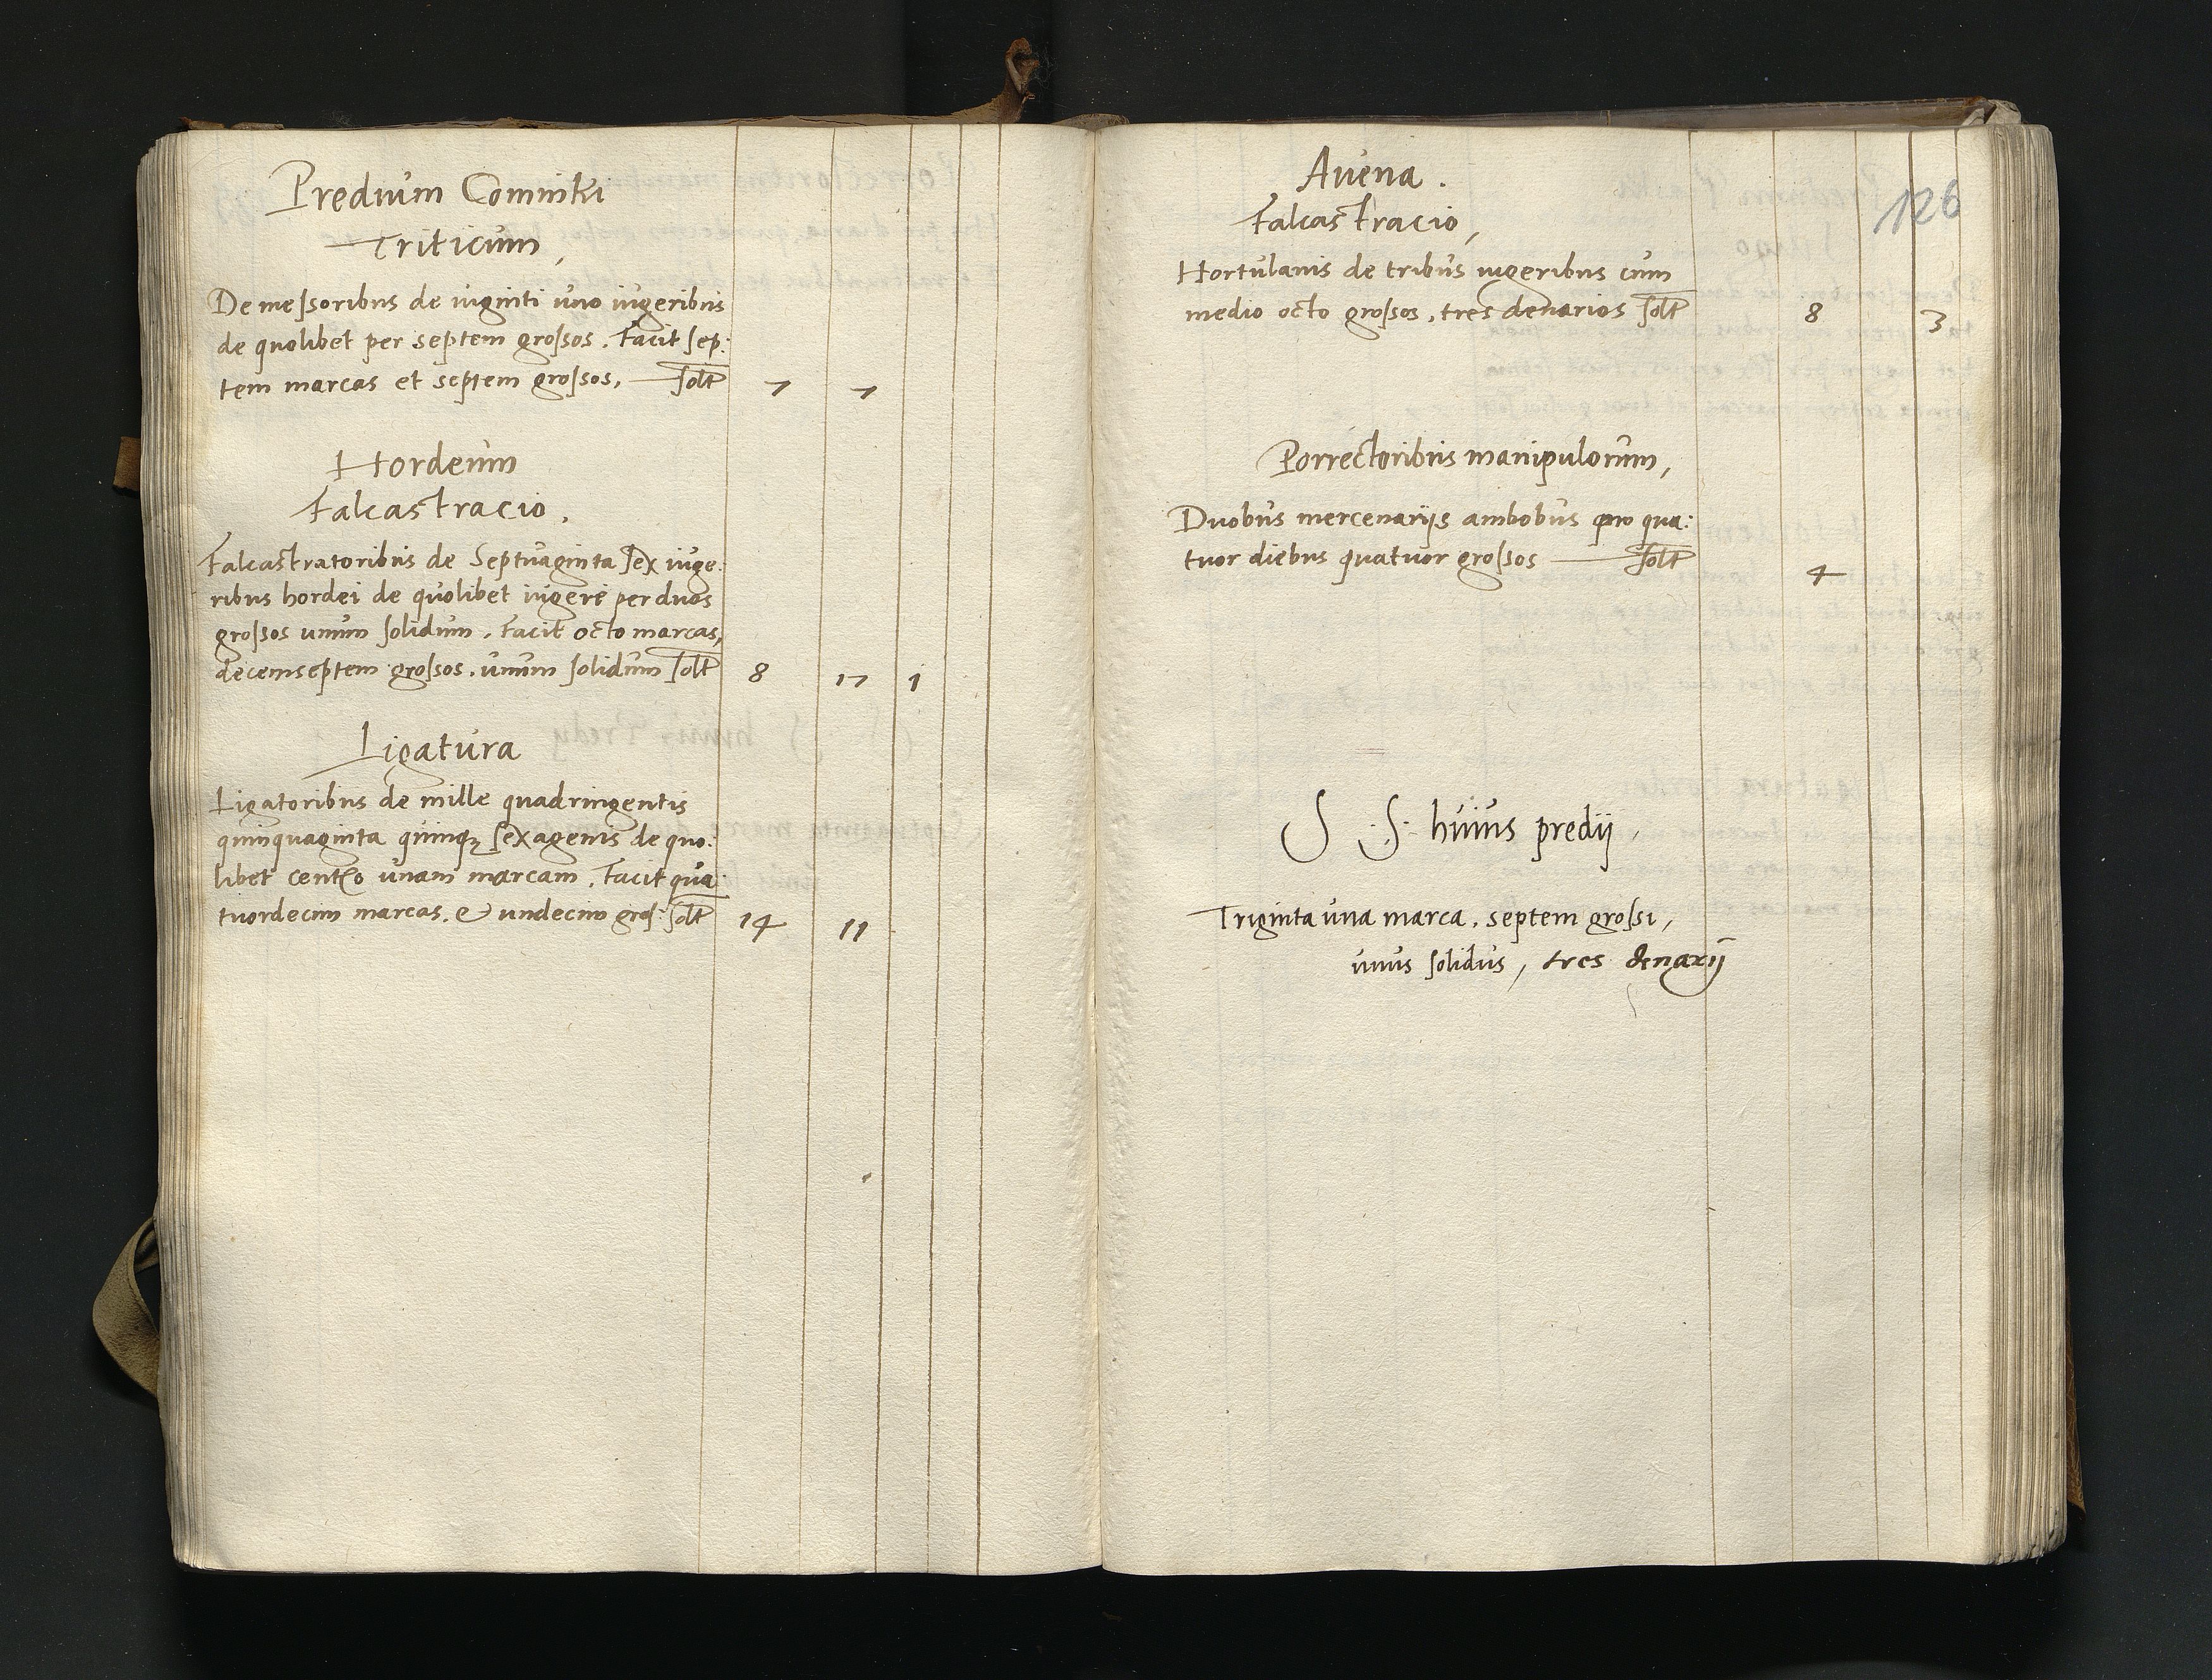 Predium Comniki
Triticum,
De messoribus de viginti uno iugeribus
de quolibet per septem grossos. Facit sep:
tem marcas et septem grossos, solt 7 7
Hordeum
Falcastracio.
Falcastratoribus de Septuaginta sex iuge:
ribus hordei de quolibet iugere per duos
grossos unum solidum. Facit octo marcas,
decemseptem grossos. unum solidum solt 8 17 1
Ligatura
Ligatoribus de mille quadringentis
quinquaginta quinqz sexagenis de quo:
libet centro unam marcam. Facit qua:
tuordecim marcas. et undecim gros: solt 14 11
126
Avena.
Falcastracio,
Hortulanis de tribus iugeribus cum
medio octo grossos, tres denarios solt 8 3
Porrectoribus manipulorum,
Duobus mercenarijs ambobus pro qua:
tuor diebus quatuor grossos solt 4
S :S: huius predij,
Triginta una marca, septem grossi,
unus solidus, tres denarij